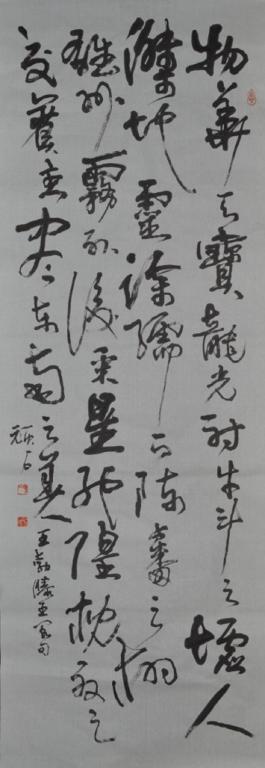 物華天寶龍光射牛斗之墟人
傑地靈徐孺下陳蕃之榻
雄州霧列俊采星馳隍枕之
交賓主盡東南之美 王勃滕王閣句
頑石